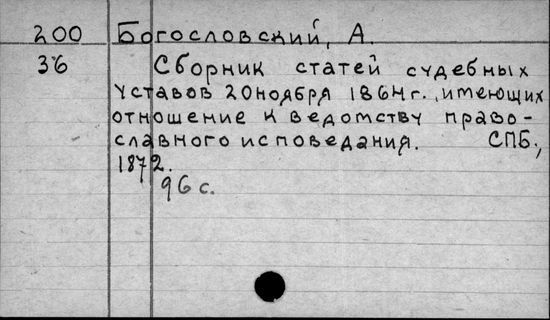 200 Богословский, А.
36 Сборник статей судебных
уставов 20 ноября 1864 г., имеющих
отношение к ведомству право-
славного исповедания. СПБ.,
1872.
96 с.